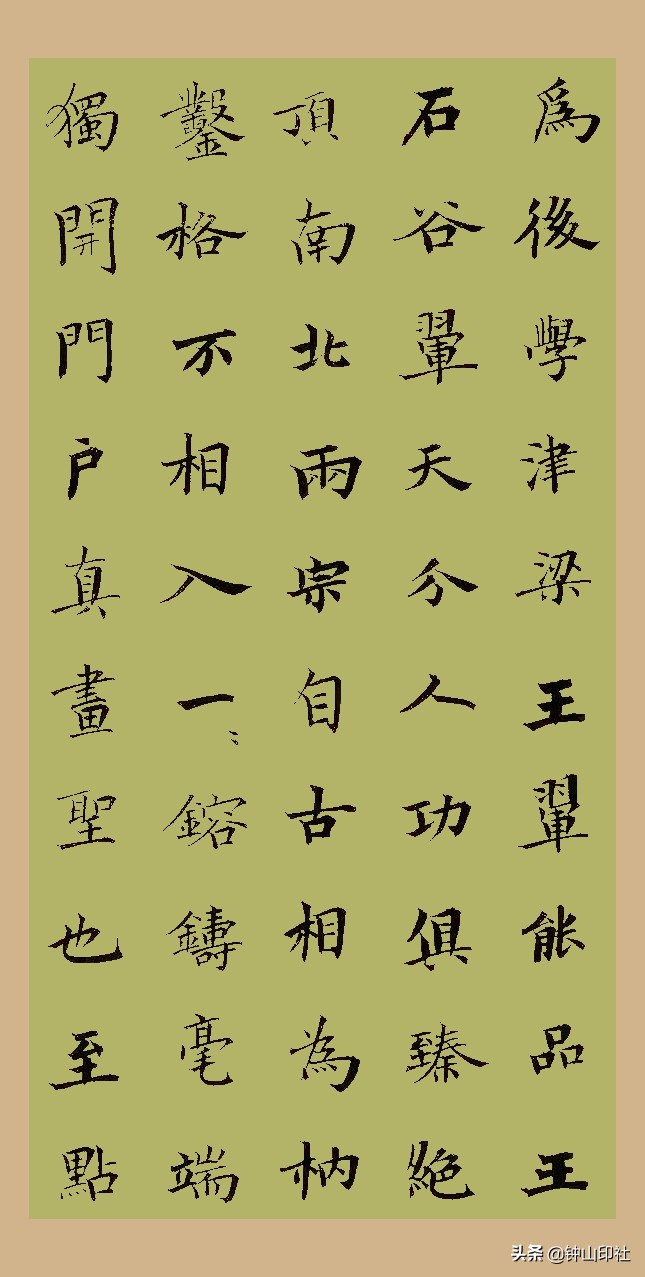 爲後學津梁王翬能品王
石谷翬天分人功俱臻絶
頂南北兩宗自古相為枘
鑿格不相入一〻鎔鑄毫端
獨開門户真畫聖也至點
头条 @钟山印社